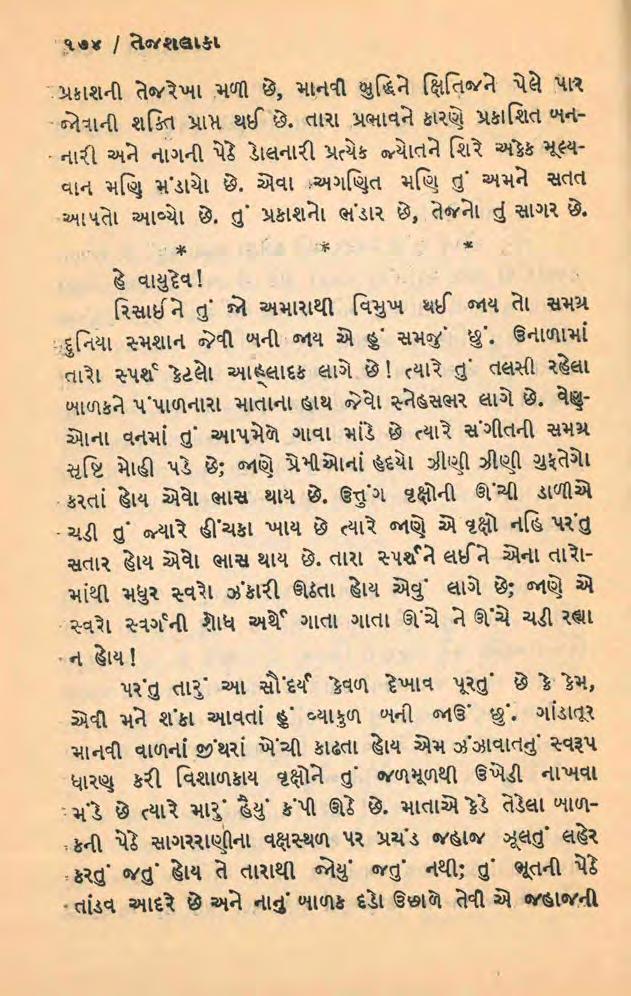 ૧૭૪ / તેજશલાકા
પ્રકાશની તેજરેખા મળી છે, માનવી બુદ્ધિને ક્ષિતિજને પેલે પાર
જોવાની શક્તિ પ્રાપ્ત થઈ છે. તારા પ્રભાવને કારણે પ્રકાશિત બન-
નારી અને નાગની પેઠે ડોલનારી પ્રત્યેક જ્યોતને શિરે અકેક મૂલ્ય-
વાન મણિ મંડાયો છે. એવા અગણિત મણિ તું અમને સતત
આપતો આવ્યો છે. તું પ્રકાશનો ભંડાર છે, તેજનો તું સાગર છે.
* * *
હે વાયુદેવ!
રિસાઈને તું જો અમારાથી વિમુખ થઈ જાય તો સમગ્ર
દુનિયા સ્મશાન જેવી બની જાય એ હું સમજું છું. ઉનાળામાં
તારો સ્પર્શ કેટલો આહ્‌લાદક લાગે છે! ત્યારે તું તલસી રહેલા
બાળકને પંપાળનારા માતાના હાથ જેવો સ્નેહસભર લાગે છે. વેણુ-
ઓના વનમાં તું આપમેળે ગાવા માંડે છે ત્યારે સંગીતની સમગ્ર
સૃષ્ટિ મોહી પડે છે; જાણે પ્રેમીઓનાં હૃદયો ઝીણી ઝીણી ગુફતેગો
કરતાં હોય એવો ભાસ થાય છે. ઉત્તુંગ વૃક્ષોની ઊંચી ડાળીએ
ચડી તું જ્યારે હીંચકા ખાય છે ત્યારે જાણે એ વૃક્ષો નહિ પરંતુ
સતાર હોય એવો ભાસ થાય છે. તારા સ્પર્શને લઈને એના તારો-
માંથી મધુર સ્વરો ઝંકારી ઊઠતા હોય એવું લાગે છે; જાણે એ
સ્વરો સ્વર્ગની શોધ અર્થે ગાતા ગાતા ઊંચે ને ઊંચે ચડી રહ્યા
ન હોય!
પરંતુ તારું આ સૌંદર્ય કેવળ દેખાવ પૂરતું છે કે કેમ,
એવી મને શંકા આવતાં હું વ્યાકુળ બની જાઉં છું. ગાંડાતૂર
માનવી વાળનાં જીંથરાં ખેંચી કાઢતા હોય એમ ઝંઝાવાતનું સ્વરૂપ
ધારણ કરી વિશાળકાય વૃક્ષોને તું જળમૂળથી ઉખેડી નાખવા
મંડે છે ત્યારે મારું હૈયું કંપી ઊઠે છે. માતાએ કેડે તેડેલા બાળ-
કની પેઠે સાગરરાણીના વક્ષસ્થળ પર પ્રચંડ જહાજ ઝૂલતું લહેર
કરતું જતું હોય તે તારાથી જોયું જતું નથી; તું ભૂતની પેઠે
તાંડવ આદરે છે અને નાનું બાળક દડો ઉછાળે તેવી એ જહાજની